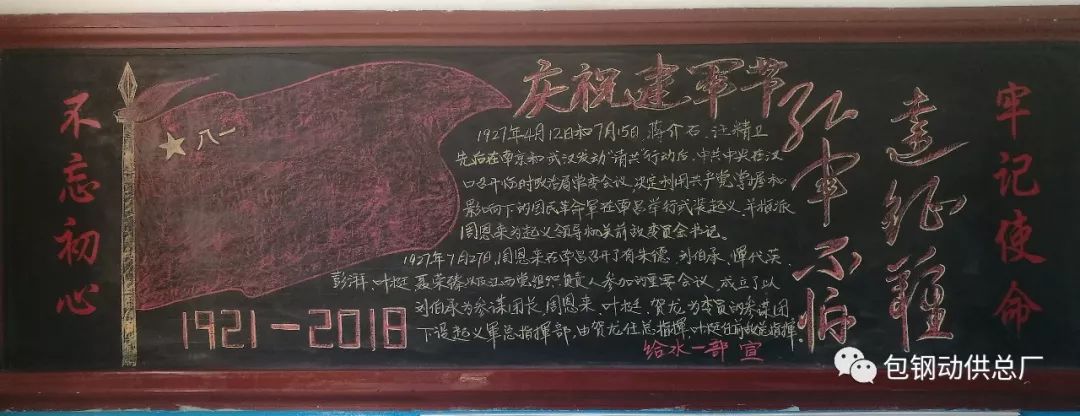 不忘初心
八一
1921-2018
庆祝建军节
1927年4月12日和7月15日,蒋介石、汪精卫
先后在南京和武汉发动"清共"行动后,中共中央在汉
口召开临时政治局常委会议,决定利用共产党掌握和
影响下的国民革命军在南昌举行武装起义,并指派
周恩来为起义领导机关前敌委员会书记。
1927年7月27日,周恩来在南昌召开了有朱德、刘伯承、恽代英、
彭湃、叶挺、聂荣臻以及江西党组织负责人参加的重要会议,成立了以
刘伯承为参谋团长,周恩来、叶挺、贺龙为委员的参谋团
下设起义军总指挥部,由贺龙任总指挥,叶挺任前敌总指挥
给水一部 宣
红军不怕
远征难
牢记使命
包钢动供总厂